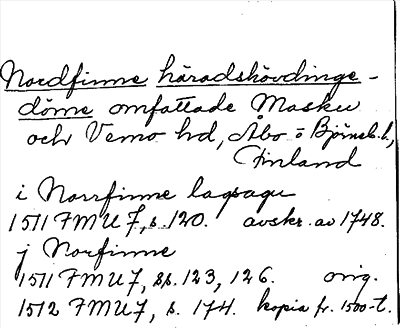 Nordfinne häradshövdinge-
döme omfattade Masku
och Vemo hd, Åbo o Björneb. l,
Finland
i Norrfinne lagsagu
1511 FMU 7, s. 120. avskr. av 1748.
j Norfinne
1511 FMU 7, ss. 123, 126. orig.
1512 FMU 7, s. 174. kopia fr. 1500-t.